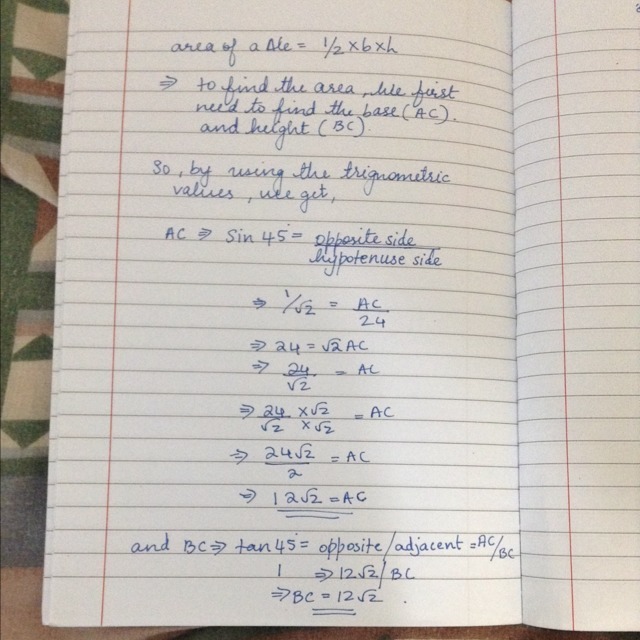 area of a Δle = 1/2 × b × h
⇒ to find the area, we first
need to find the base (AC).
and height (BC).
So, by using the trignometric
values, we get,
AC ⇒ Sin 45° = opposite side / hypotenuse side
⇒ 1/√2 = AC / 24
⇒ 24 = √2 AC
⇒ 24 / √2 = AC
⇒ 24 / √2 × √2 / × √2 = AC
⇒ 24√2 / 2 = AC
⇒ 12√2 = AC
and BC ⇒ tan 45° = opposite / adjacent = AC/BC
1 ⇒ 12√2 / BC
⇒ BC = 12√2 .